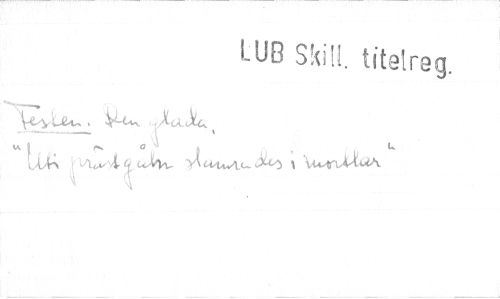 LUB Skill. titelreg.
Festen. Den glada,
"Uti prästgåln stamrades i mortlar"